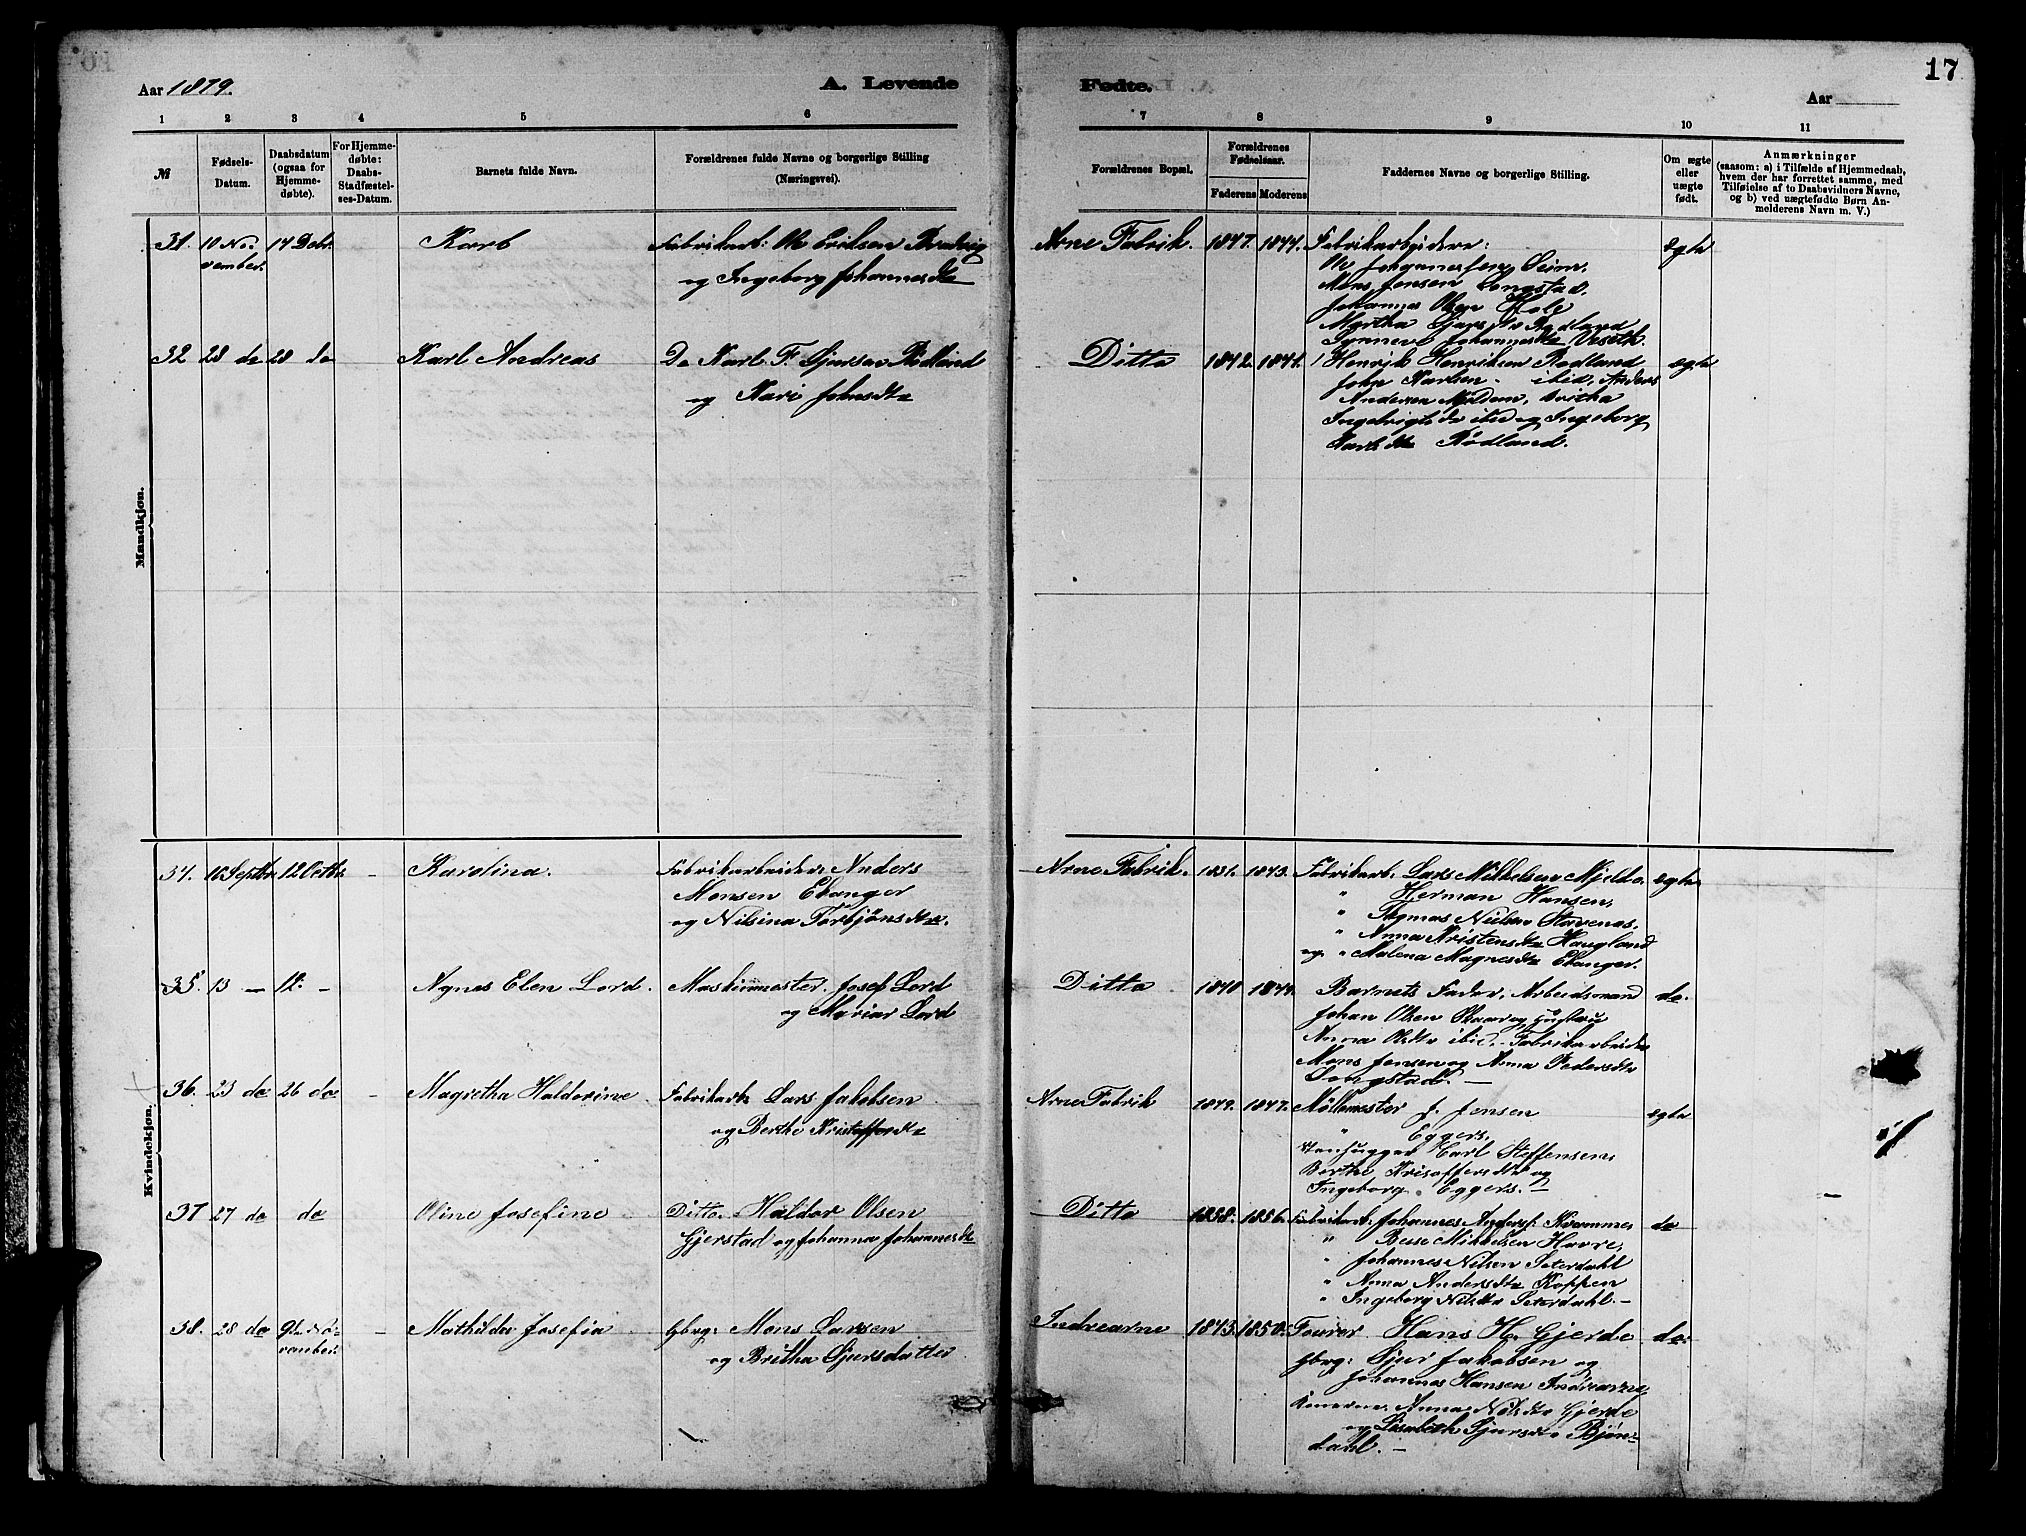 17
Aar 1879.
A. Levende
Fødte.
Aar
1 2 3 4 5 6
7 8 9 10 11
№
Fødsels-
Datum.
Daabsdatum
(ogsaa for
Hjemme-
døbte).
For Hjemme-
døbte:
Daabs-
Stadfæstel-
ses-Datum.
Barnets fulde Navn.
Forældrenes fulde Navne og borgerlige Stilling
(Næringsvei).
Forældrenes Bopæl.
Forældrenes
Fødselsaar.
Faderens Moderens
Faddernes Navne og borgerlige Stilling.
Om ægte
eller
uægte
født.
Anmærkninger
(saasom: a) i Tilfælde af Hjemmedaab,
hvem der har forrettet samme, med
Tilføielse af to Daabsvidners Navne,
og b) ved uægtefødte Børn An-
melderens Navn m. V.)
Mandkjøn.
31. 10 No-
vember. 14 Debr.
Fabrikarb: Ole Eriksen
og Ingeborg Johannesdtr
Arne Fabrik. 1847. 1844.
Fabrikarbeidere:
Ole Johannesen Seim,
Mons Jensen Longstad,
Johannes Olsen Hole
Martha Sjursdtr Rødland
Synneve Johannesdtr Veseth.
ægte
32 28 do 28 do
Karl Andreas
Do Karl F. Sjursen Rødland
og Kari Johnsdtr
Ditto 1842. 1841.
Henrik Henriksen Rødland
John Karlsen ibid, Anders
Andersen Mjeldem, Britha
Ingebrigtsdtr ibid og Ingeborg
Karlsdtr Rødland.
ægte
Kvindekjøn.
34. 16 Septbr 12 Octbr -
Karolina.
Fabrikarbeider Anders
Monsen Evanger
og Nilsina Torbjønsdtr.
Arne Fabrik. 1831. 1843.
Fabrikarb. Lars Mikkelsen Mjelde.
" Herman Hansen,
" Thomas Nielsen Stavenæs.
" Anna Kristensdtr Haugland
og " Malena Magnesdtr Evanger.
ægte
35. 13 - 12. -
Agnes Elen Lord.
Maskinmester. Josef Lord
og Mariar Lord
Ditto 1840 1844.
Barnets Fader, Arbeidsmand
Johan Olsen Skaar og Hustru
Anna Olsdtr ibid. Fabrikarbeider
Mons Jensen og Anna Pedersdtr
Longstad. -
do.
36. 23 do 26 do -
Magretha Halderine
Fabrikarb. Lars Jakobsen
og Berthe Kristoffersdtr
Arne Fabrik 1849. 1847.
Møllemester J. Jensen
" Eggers,
Stenhugger Carl Steffensen,
Berthe Krisoffersdtr og
Ingeborg Eggers. -
ægte
37 27 do do
Oline Josefine
Ditto. Haldor Olsen
Gjerstad og Johanna Johannesdtr
Ditto 1858. 1856.
Fabrikarb. Johannes Anders. Kvamme,
" Besse Mikkelsen Havre,
" Johannes Nilsen Seterdahl
" Anna Andersdtr Koppen
" Ingeborg Nilsdtr Seterdahl. -
do
38. 28 do 9de No-
vember. -
Mathilde Josefia
Gbrg: Mons Larsen
og Britha Sjursdatter
Indrearne 1843. 1850.
Hans H. Gjerde
Gbrg: Sjur Jakobsen og
Johannes Hansen Indrearne,
Anna Nilsdtr Gjerde
og Lisabeth Sjursdtr Bjøn-
dahl. -
do.